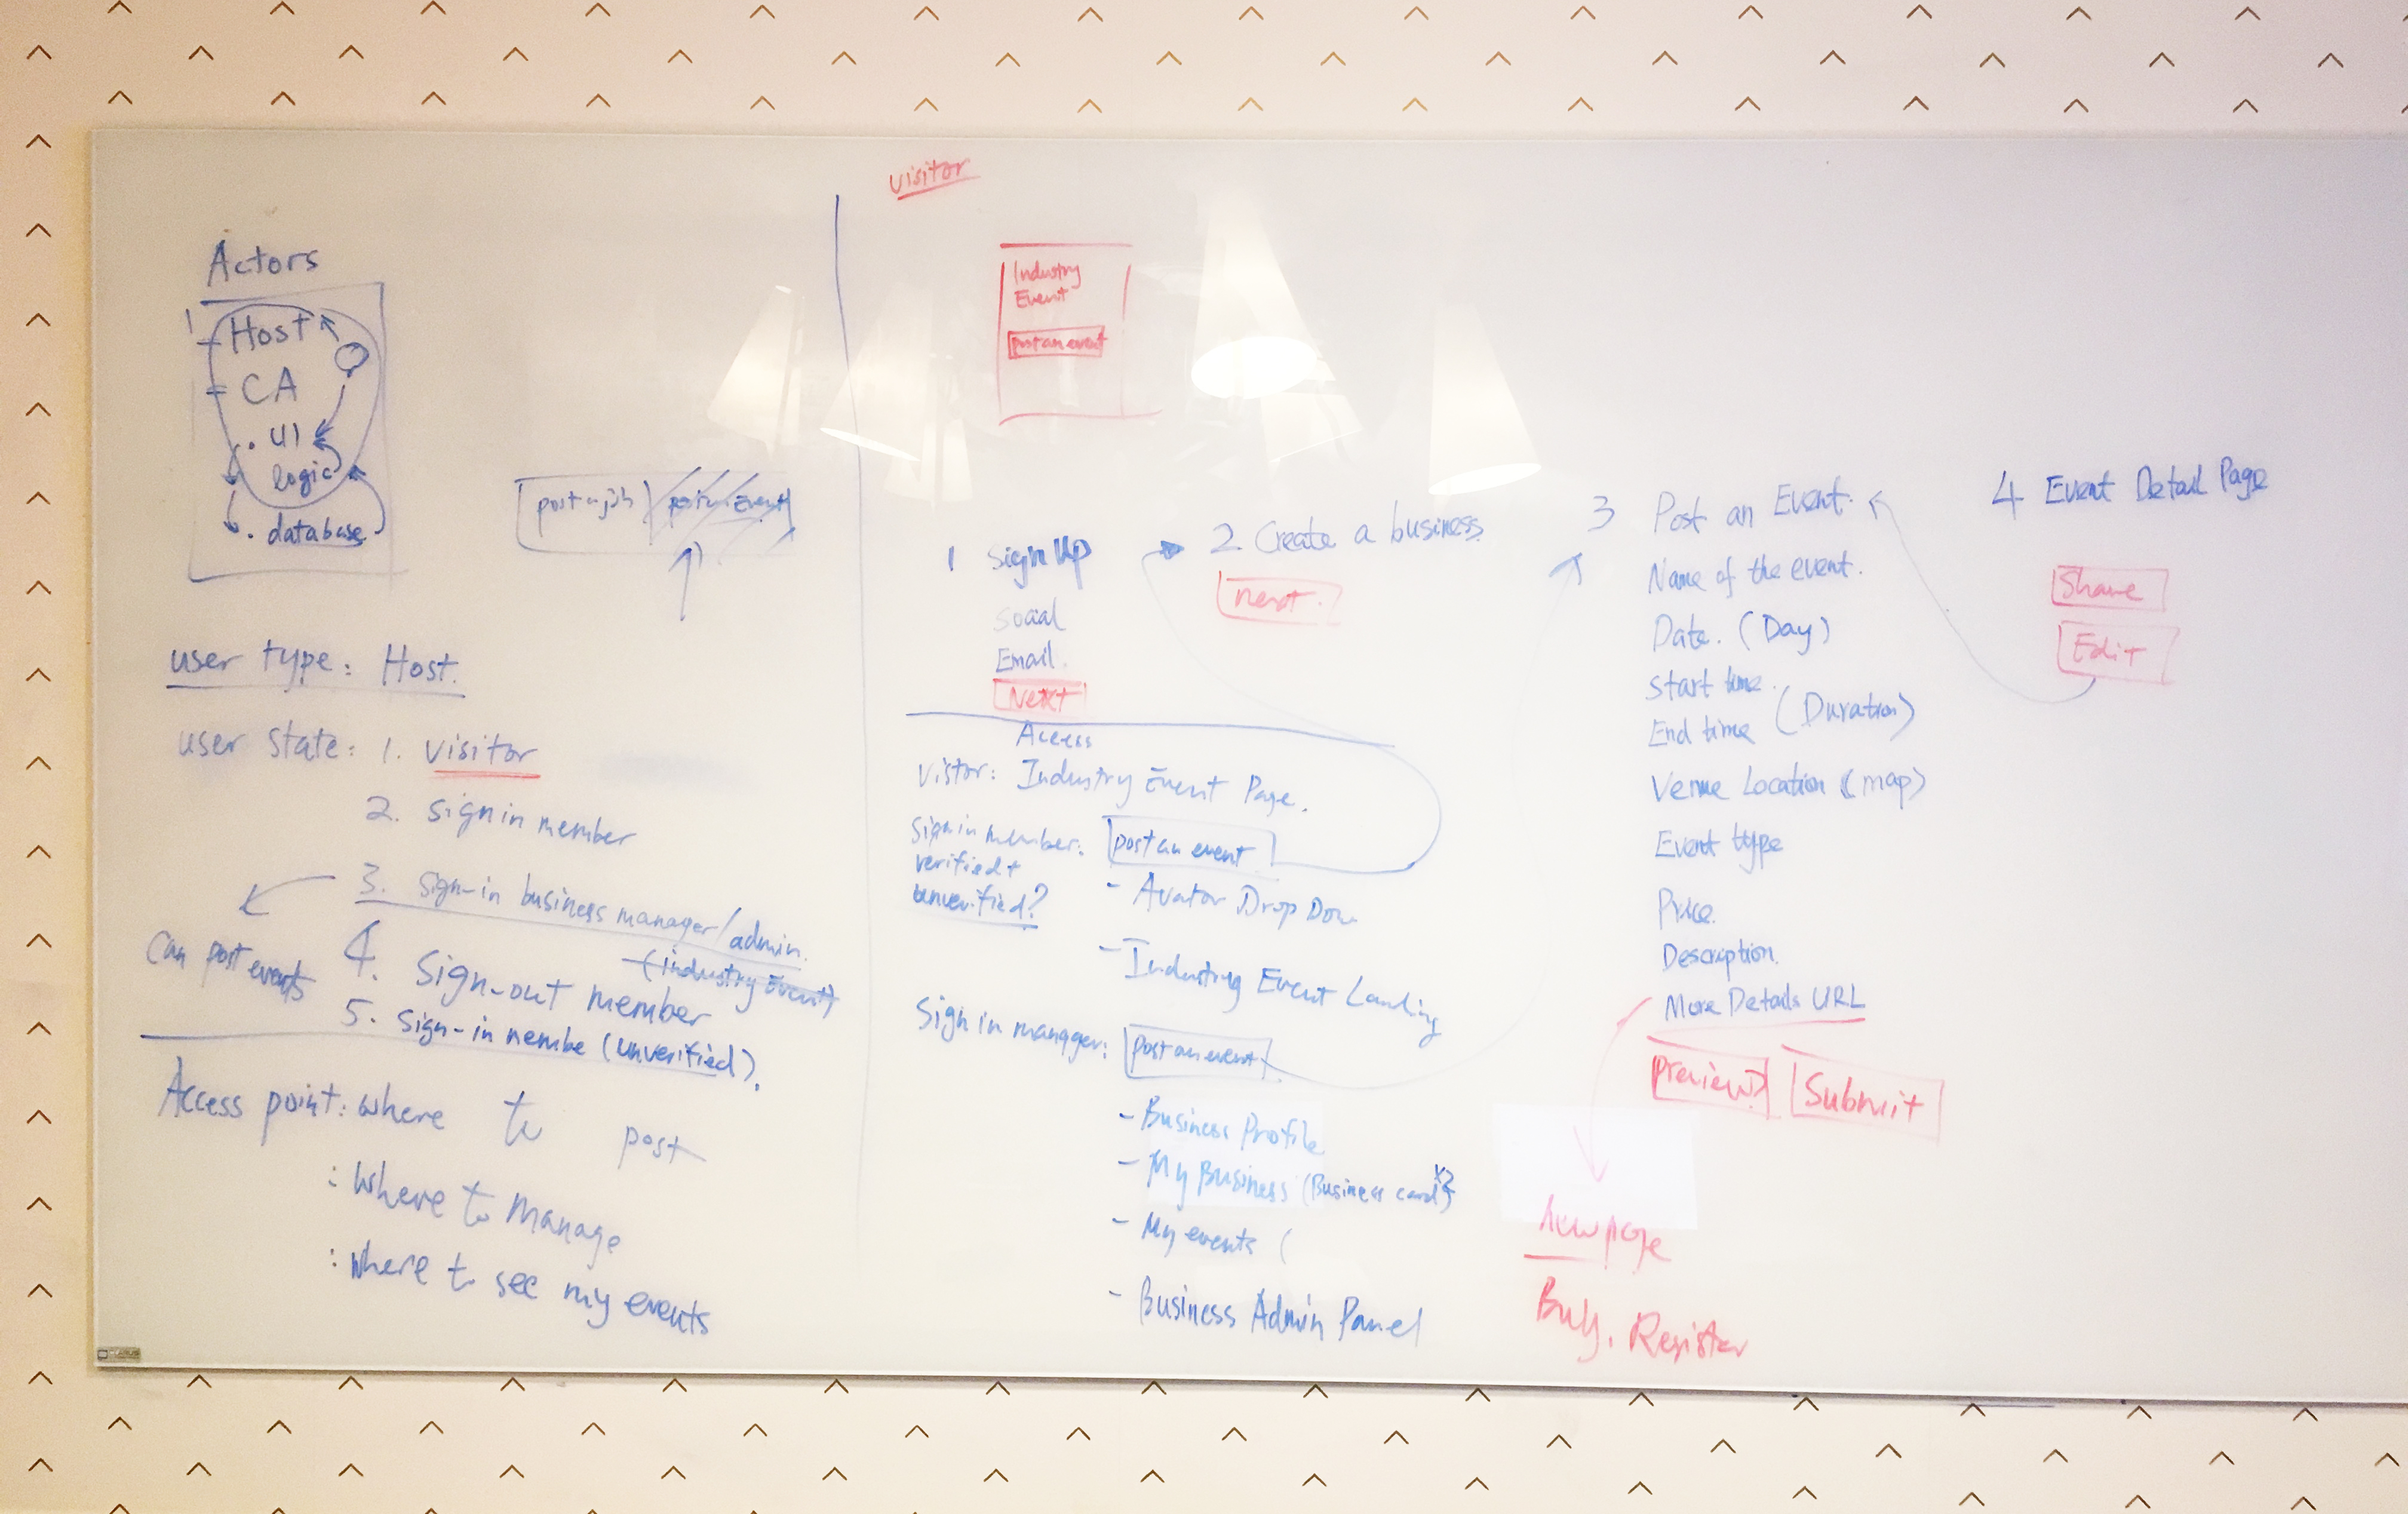 Actors
1 Host
= CA
. UI
logic
. database
post a job
post an Event
user type: Host.
user state: 1. visitor
2. sign in member
3. sign-in business manager/admin.
(industry Event)
Can post events
4. Sign-out member
5. sign-in membe (unverified).
Access point: where to post
: where to manage
: where to see my events
visitor
Industry
Event
post an event
1 Sign Up
Social
Email.
Next
2 Create a business
next.
Access
Vistor: Industry Event Page.
Sign in member:
verified +
unverified?
post an event
- Avator Drop Dow
- Industry Event Landing
Sign in manager:
post an event
- Business Profile
- My Business (Business card) x2
- My events (
- Business Admin Panel
3 Post an Event.
Name of the event.
Date. (Day)
Start time.
End time (Duration)
Venue Location (map)
Event type
Price.
Description.
More Details URL
preview
Submit
new page
Buy. Register
4 Event Detail Page
Share
Edit